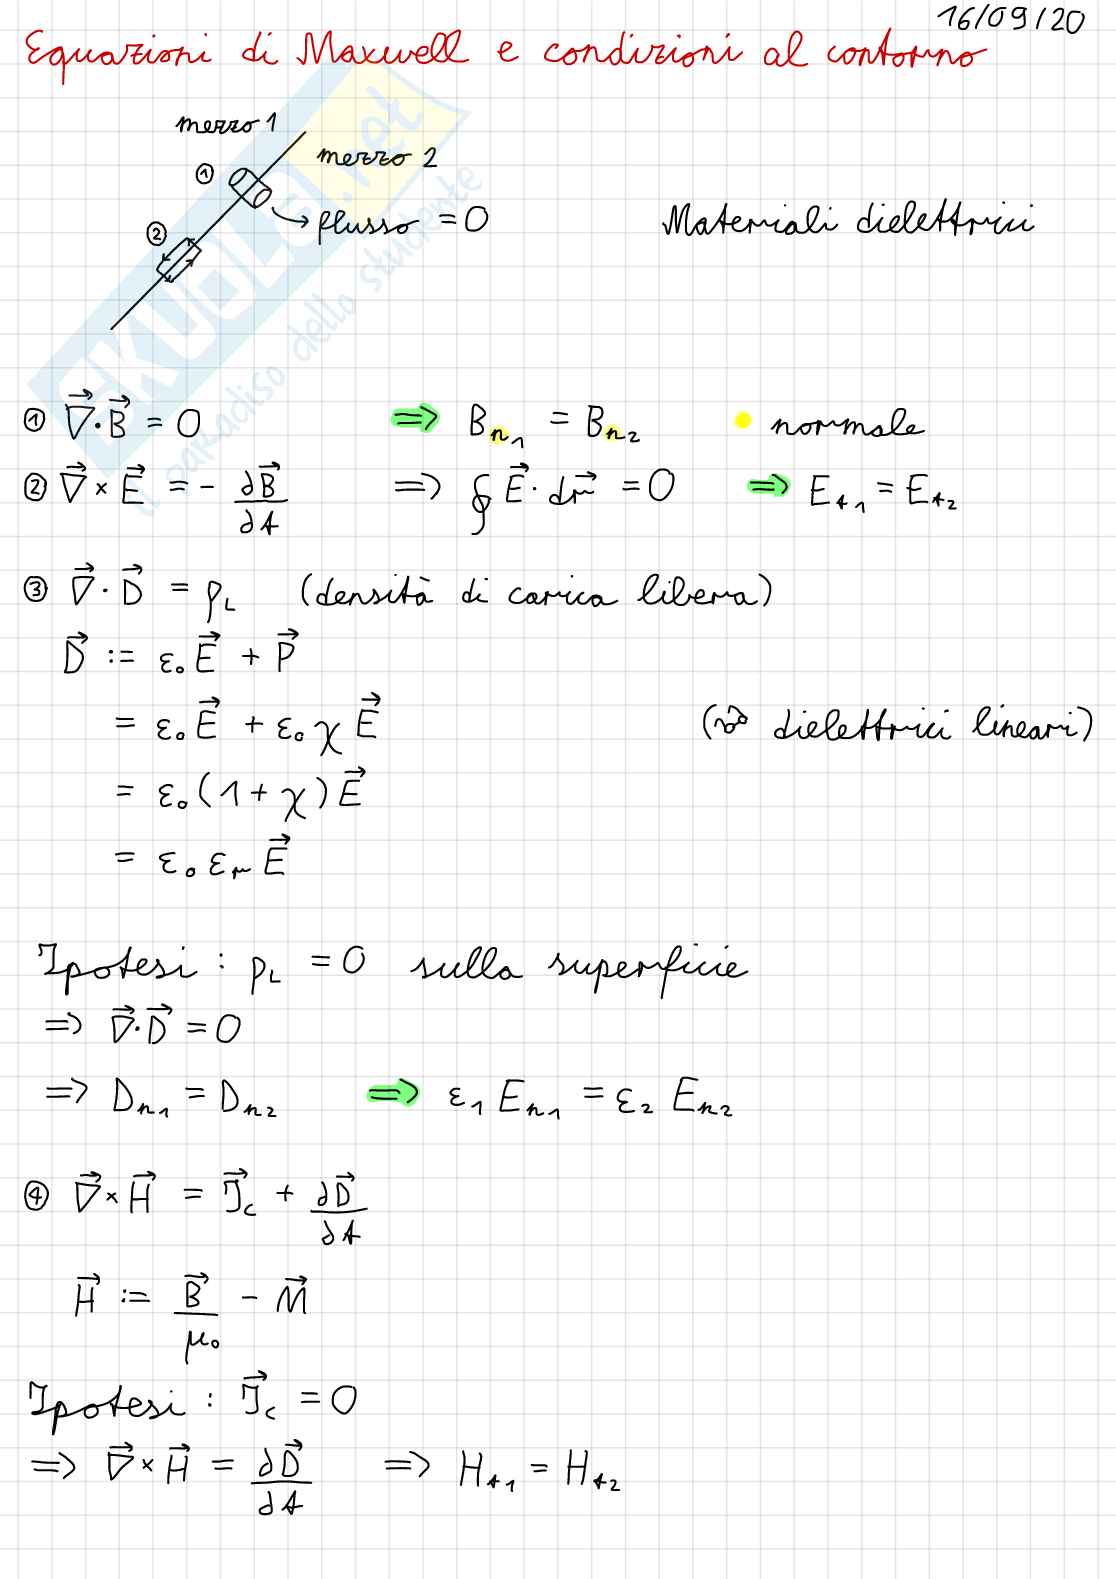 16/09/20
Equazioni di Maxwell e condizioni al contorno
mezzo 1
mezzo 2
①
flusso = 0
②
Materiali dielettrici
SKUOLA.net
il paradiso dello studente
① ∇⃗·B⃗ = 0 ⟹ Bn₁ = Bn₂ • normale
② ∇⃗×E⃗ = - ∂B⃗/∂t ⟹ ∮E⃗·dr⃗ = 0 ⟹ Et₁ = Et₂
③ ∇⃗·D⃗ = ρL (densità di carica libera)
D⃗ := ε₀E⃗ + P⃗
= ε₀E⃗ + ε₀χE⃗ (⇝ dielettrici lineari)
= ε₀(1+χ)E⃗
= ε₀εrE⃗
Ipotesi: ρL = 0 sulla superficie
⟹ ∇⃗·D⃗ = 0
⟹ Dn₁ = Dn₂ ⟹ ε₁En₁ = ε₂En₂
④ ∇⃗×H⃗ = J⃗c + ∂D⃗/∂t
H⃗ := B⃗/μ₀ - M⃗
Ipotesi: J⃗c = 0
⟹ ∇⃗×H⃗ = ∂D⃗/∂t ⟹ Ht₁ = Ht₂